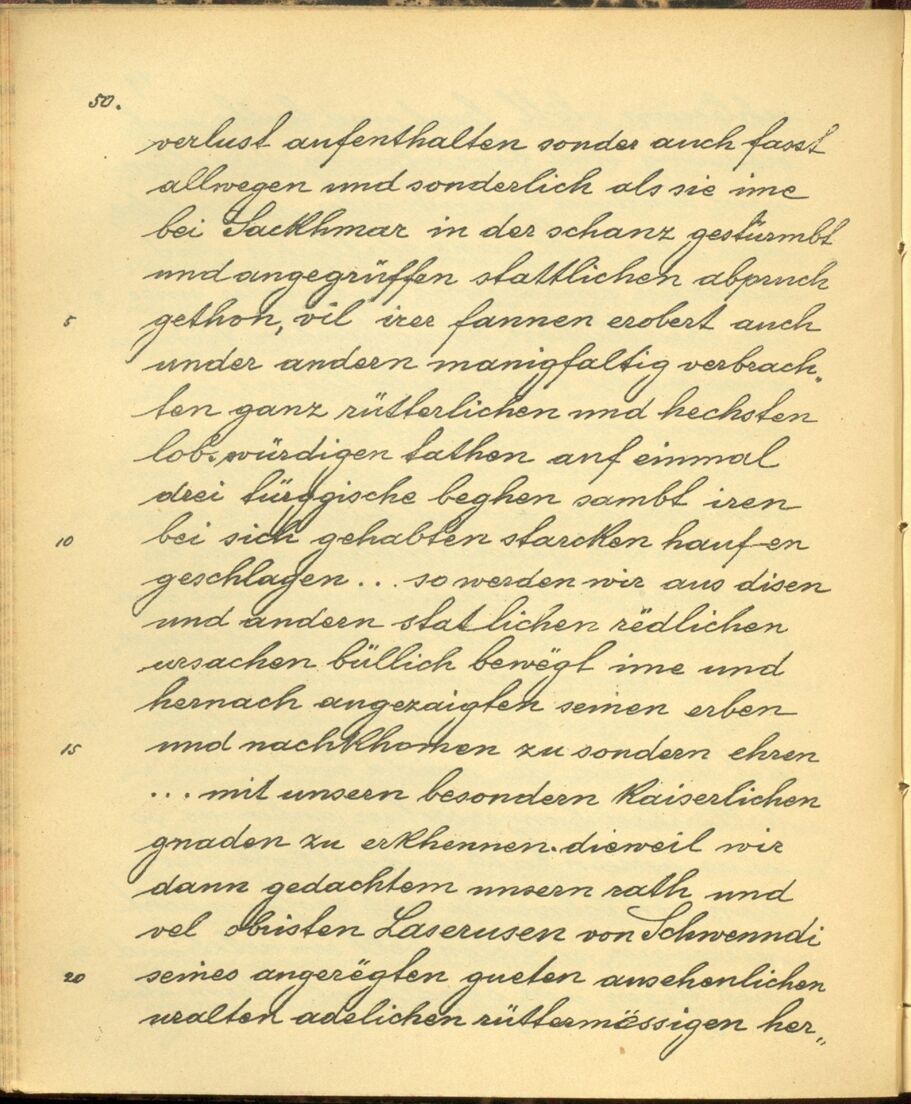 50.
verlust aufenthalten sonder auch fasst
allwegen und sonderlich als sie ime
bei Sackhmar in der schanz gestürmbt
und angegrüffen stattlichen abpruch
5 gethon, vil irer fannen erobert auch
under andern manigfaltig verbrach„
ten ganz rütterlichen und hechsten
lobs würdigen tathen auf einmal
drei türggische beghen sambt iren
10 bei sich gehabten starcken haufen
geschlagen... so werden wir aus disen
und andern statlichen rëdlichen
ursachen büllich bewëgt ime und
hernach angezaigten seinen erben
15 und nachkhomen zu sondern ehren
...mit unsern besondern kaiserlichen
gnaden zu erkhennen. dieweil wir
dann gedachtem unsern rath und
vel obristen Laserusen von Schwenndi
20 seines angerëgten gueten ansehenlichen
uralten adelichen rüttermëssigen her„